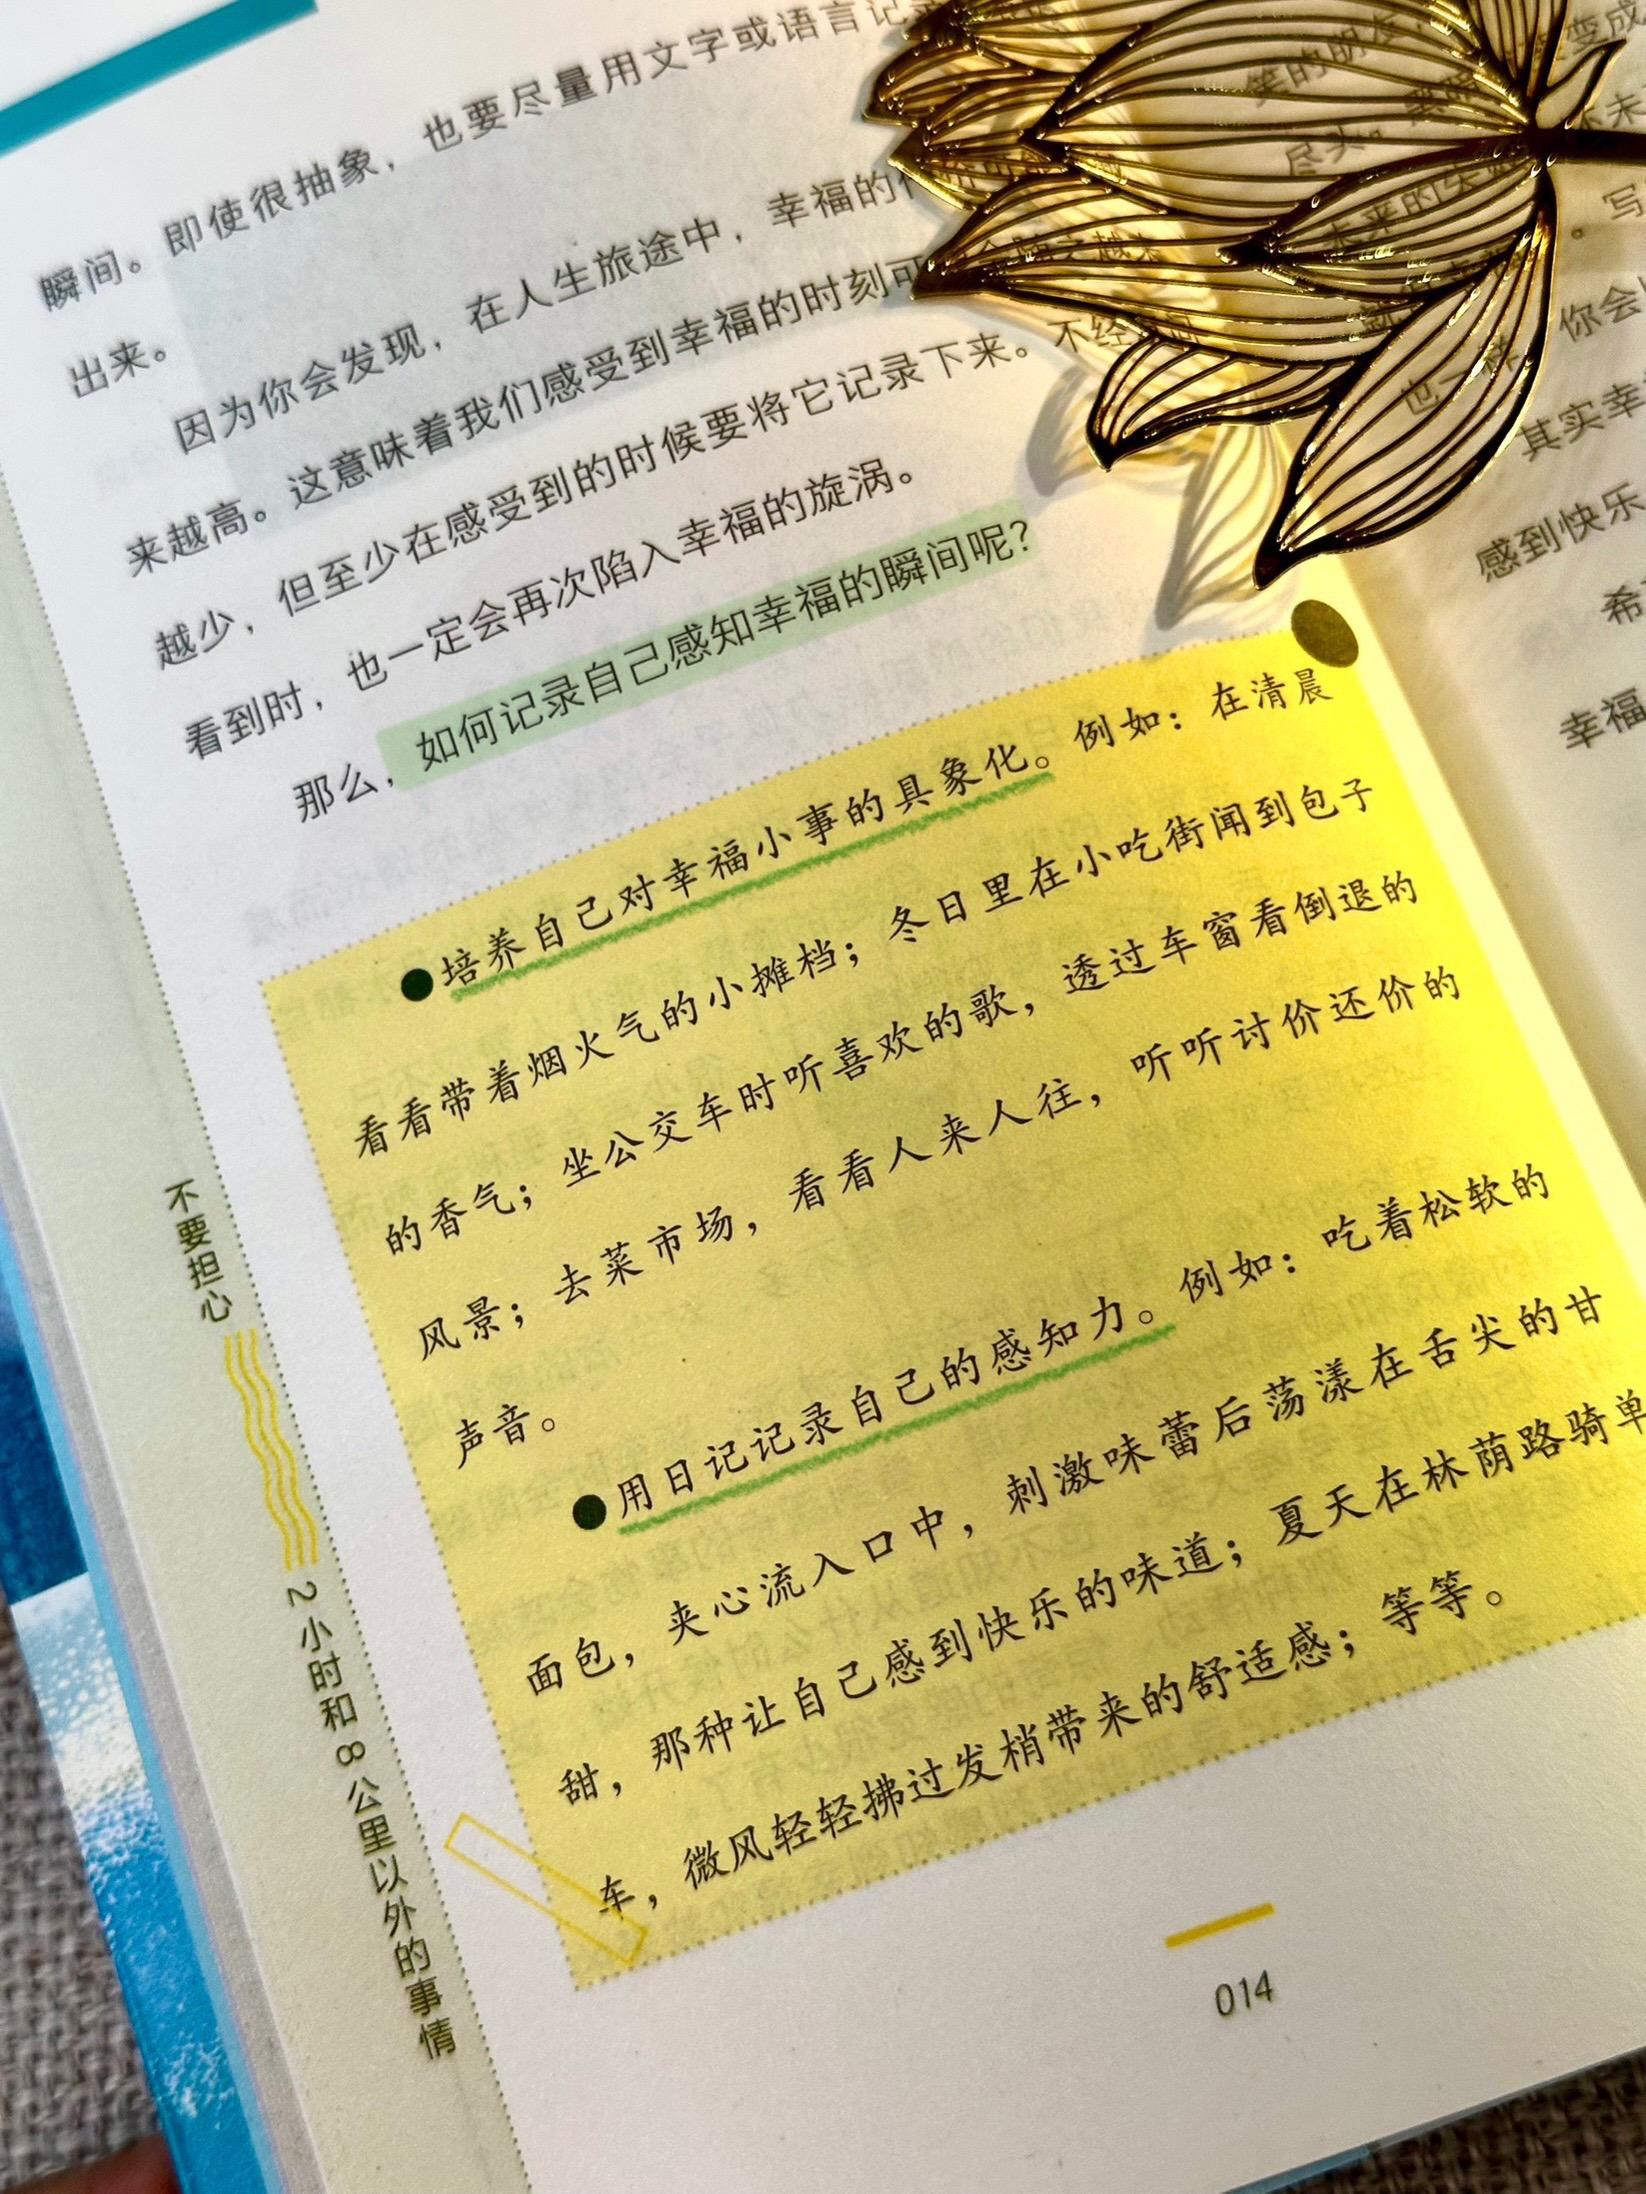 瞬间。即使很抽象，也要尽量用文字或语言记录
出来。
因为你会发现，在人生旅途中，幸福的
来越高。这意味着我们感受到幸福的时刻可
越少，但至少在感受到的时候要将它记录下来。不经
看到时，也一定会再次陷入幸福的旋涡。
那么，如何记录自己感知幸福的瞬间呢？
●培养自己对幸福小事的具象化。例如：在清晨
看看带着烟火气的小摊档；冬日里在小吃街闻到包子
的香气；坐公交车时听喜欢的歌，透过车窗看倒退的
风景；去菜市场，看看人来人往，听听讨价还价的
声音。
●用日记记录自己的感知力。例如：吃着松软的
面包，夹心流入口中，刺激味蕾后荡漾在舌尖的甘
甜，那种让自己感到快乐的味道；夏天在林荫路骑单
车，微风轻轻拂过发梢带来的舒适感；等等。
不要担心
2小时和8公里以外的事情
014
笑的朋友
变成
尽头。
未来的
写
也一样
你会
其实幸
感到快乐
希
幸福